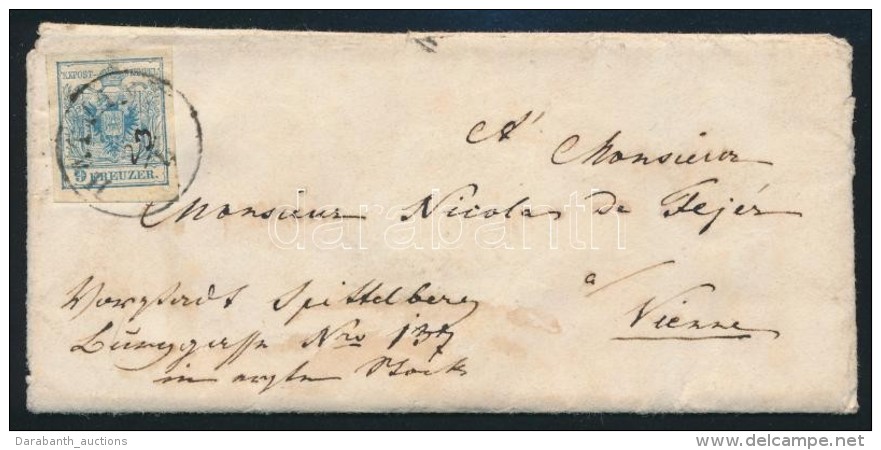 KKPOST-STEMPEL
9 KREUZER.
23
A'
Monsieur
Monsieur Nicolas de Fejér
à
Vienne
Vorstadt Spittelberg
Burggasse Nro 137
im ersten Stock
darabanth
Darabanth_auctions
www.delcampe.net